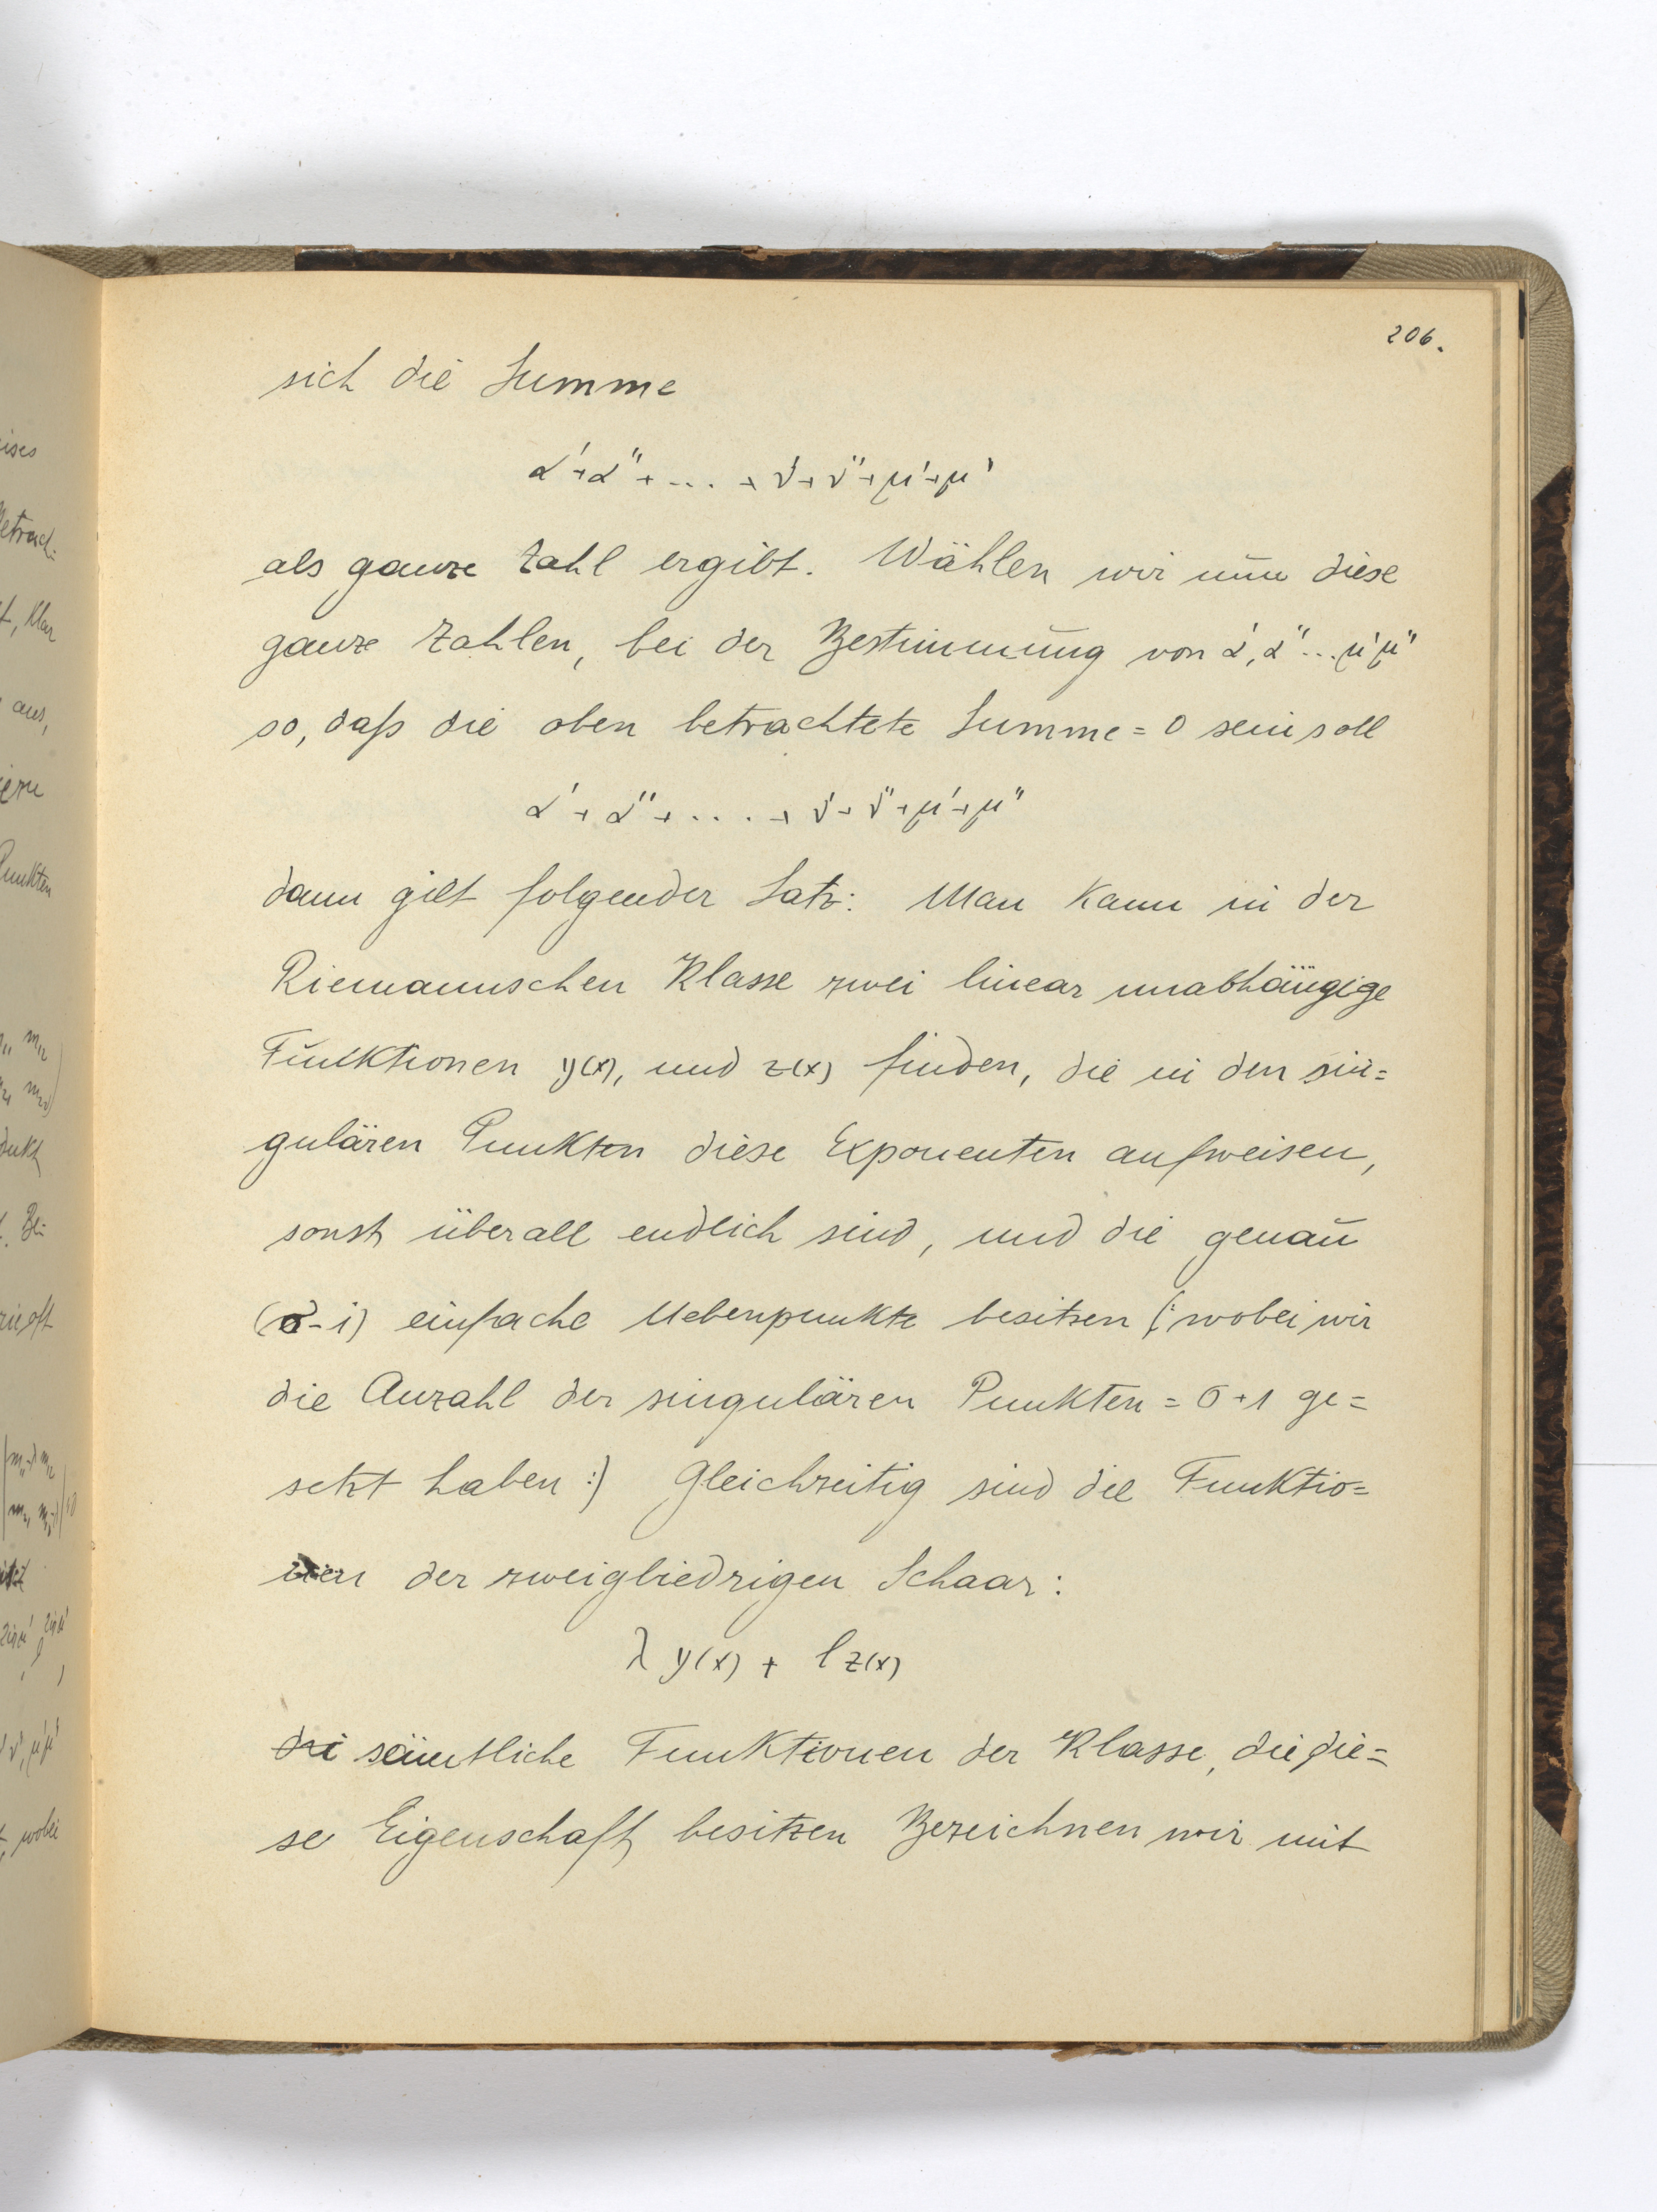 206.
sich die Summe
α' + α'' + ... + ν' + ν'' + μ' + μ'
als ganze Zahl ergibt. Wählen wir nun diese
ganze Zahlen, bei der Bestimmung von α', α'' ... μ' μ''
so, daß die oben betrachtete Summe = 0 sein soll
α' + α'' + .... + ν' + ν'' + μ' + μ''
dann gilt folgender Satz: Man kann in der
Riemannschen Klasse zwei linear unabhängige
Funktionen y(x), und z(x) finden, die in den sin=
gulären Punkten diese Exponenten aufweisen,
sonst überall endlich sind, und die genau
(σ-1) einfache Nebenpunkte besitzen (: wobei wir
die Anzahl der singulären Punkten = σ+1 ge=
setzt haben :) Gleichzeitig sind die Funktio=
nen der zweigliedrigen Schaar:
λ y(x) + l z(x)
sämtliche Funktionen der Klasse, die die=
se Eigenschaft besitzen Bezeichnen wir mit